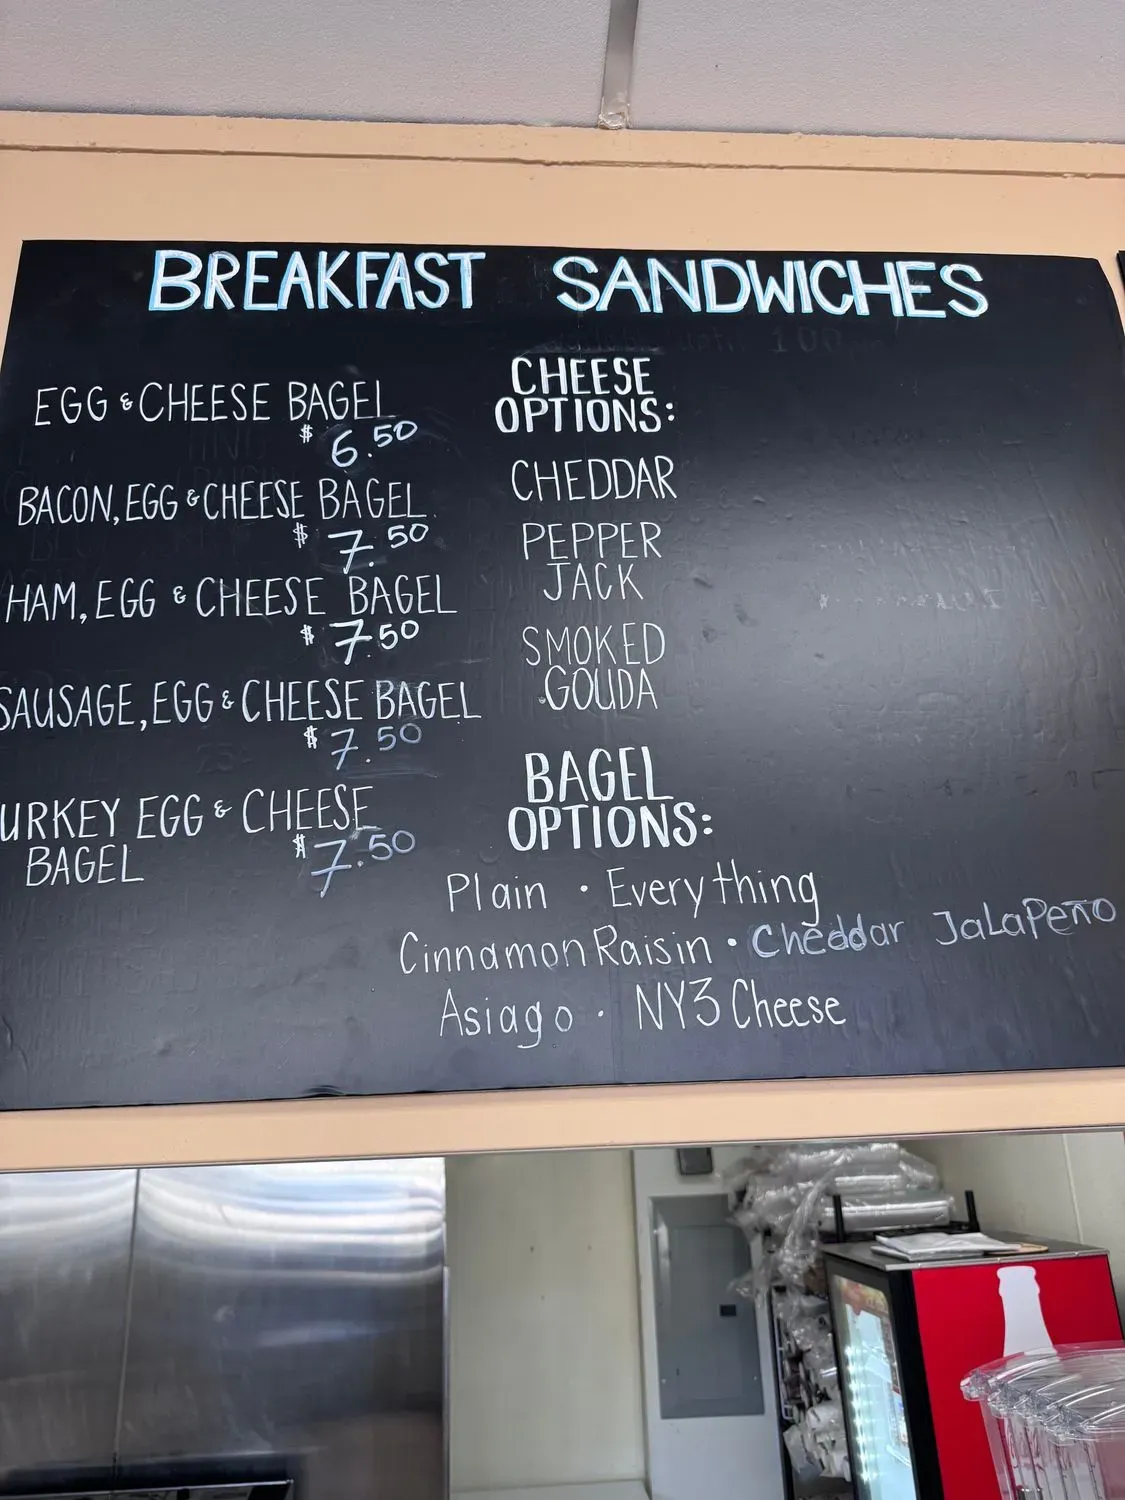 BREAKFAST SANDWICHES
EGG & CHEESE BAGEL
$ 6.50
BACON, EGG & CHEESE BAGEL
$ 7.50
HAM, EGG & CHEESE BAGEL
$ 7.50
SAUSAGE, EGG & CHEESE BAGEL
$ 7.50
URKEY EGG & CHEESE
BAGEL
$ 7.50
CHEESE
OPTIONS:
CHEDDAR
PEPPER
JACK
SMOKED
GOUDA
BAGEL
OPTIONS:
Plain · Everything
Cinnamon Raisin · Cheddar JaLaPeño
Asiago · NY3 Cheese